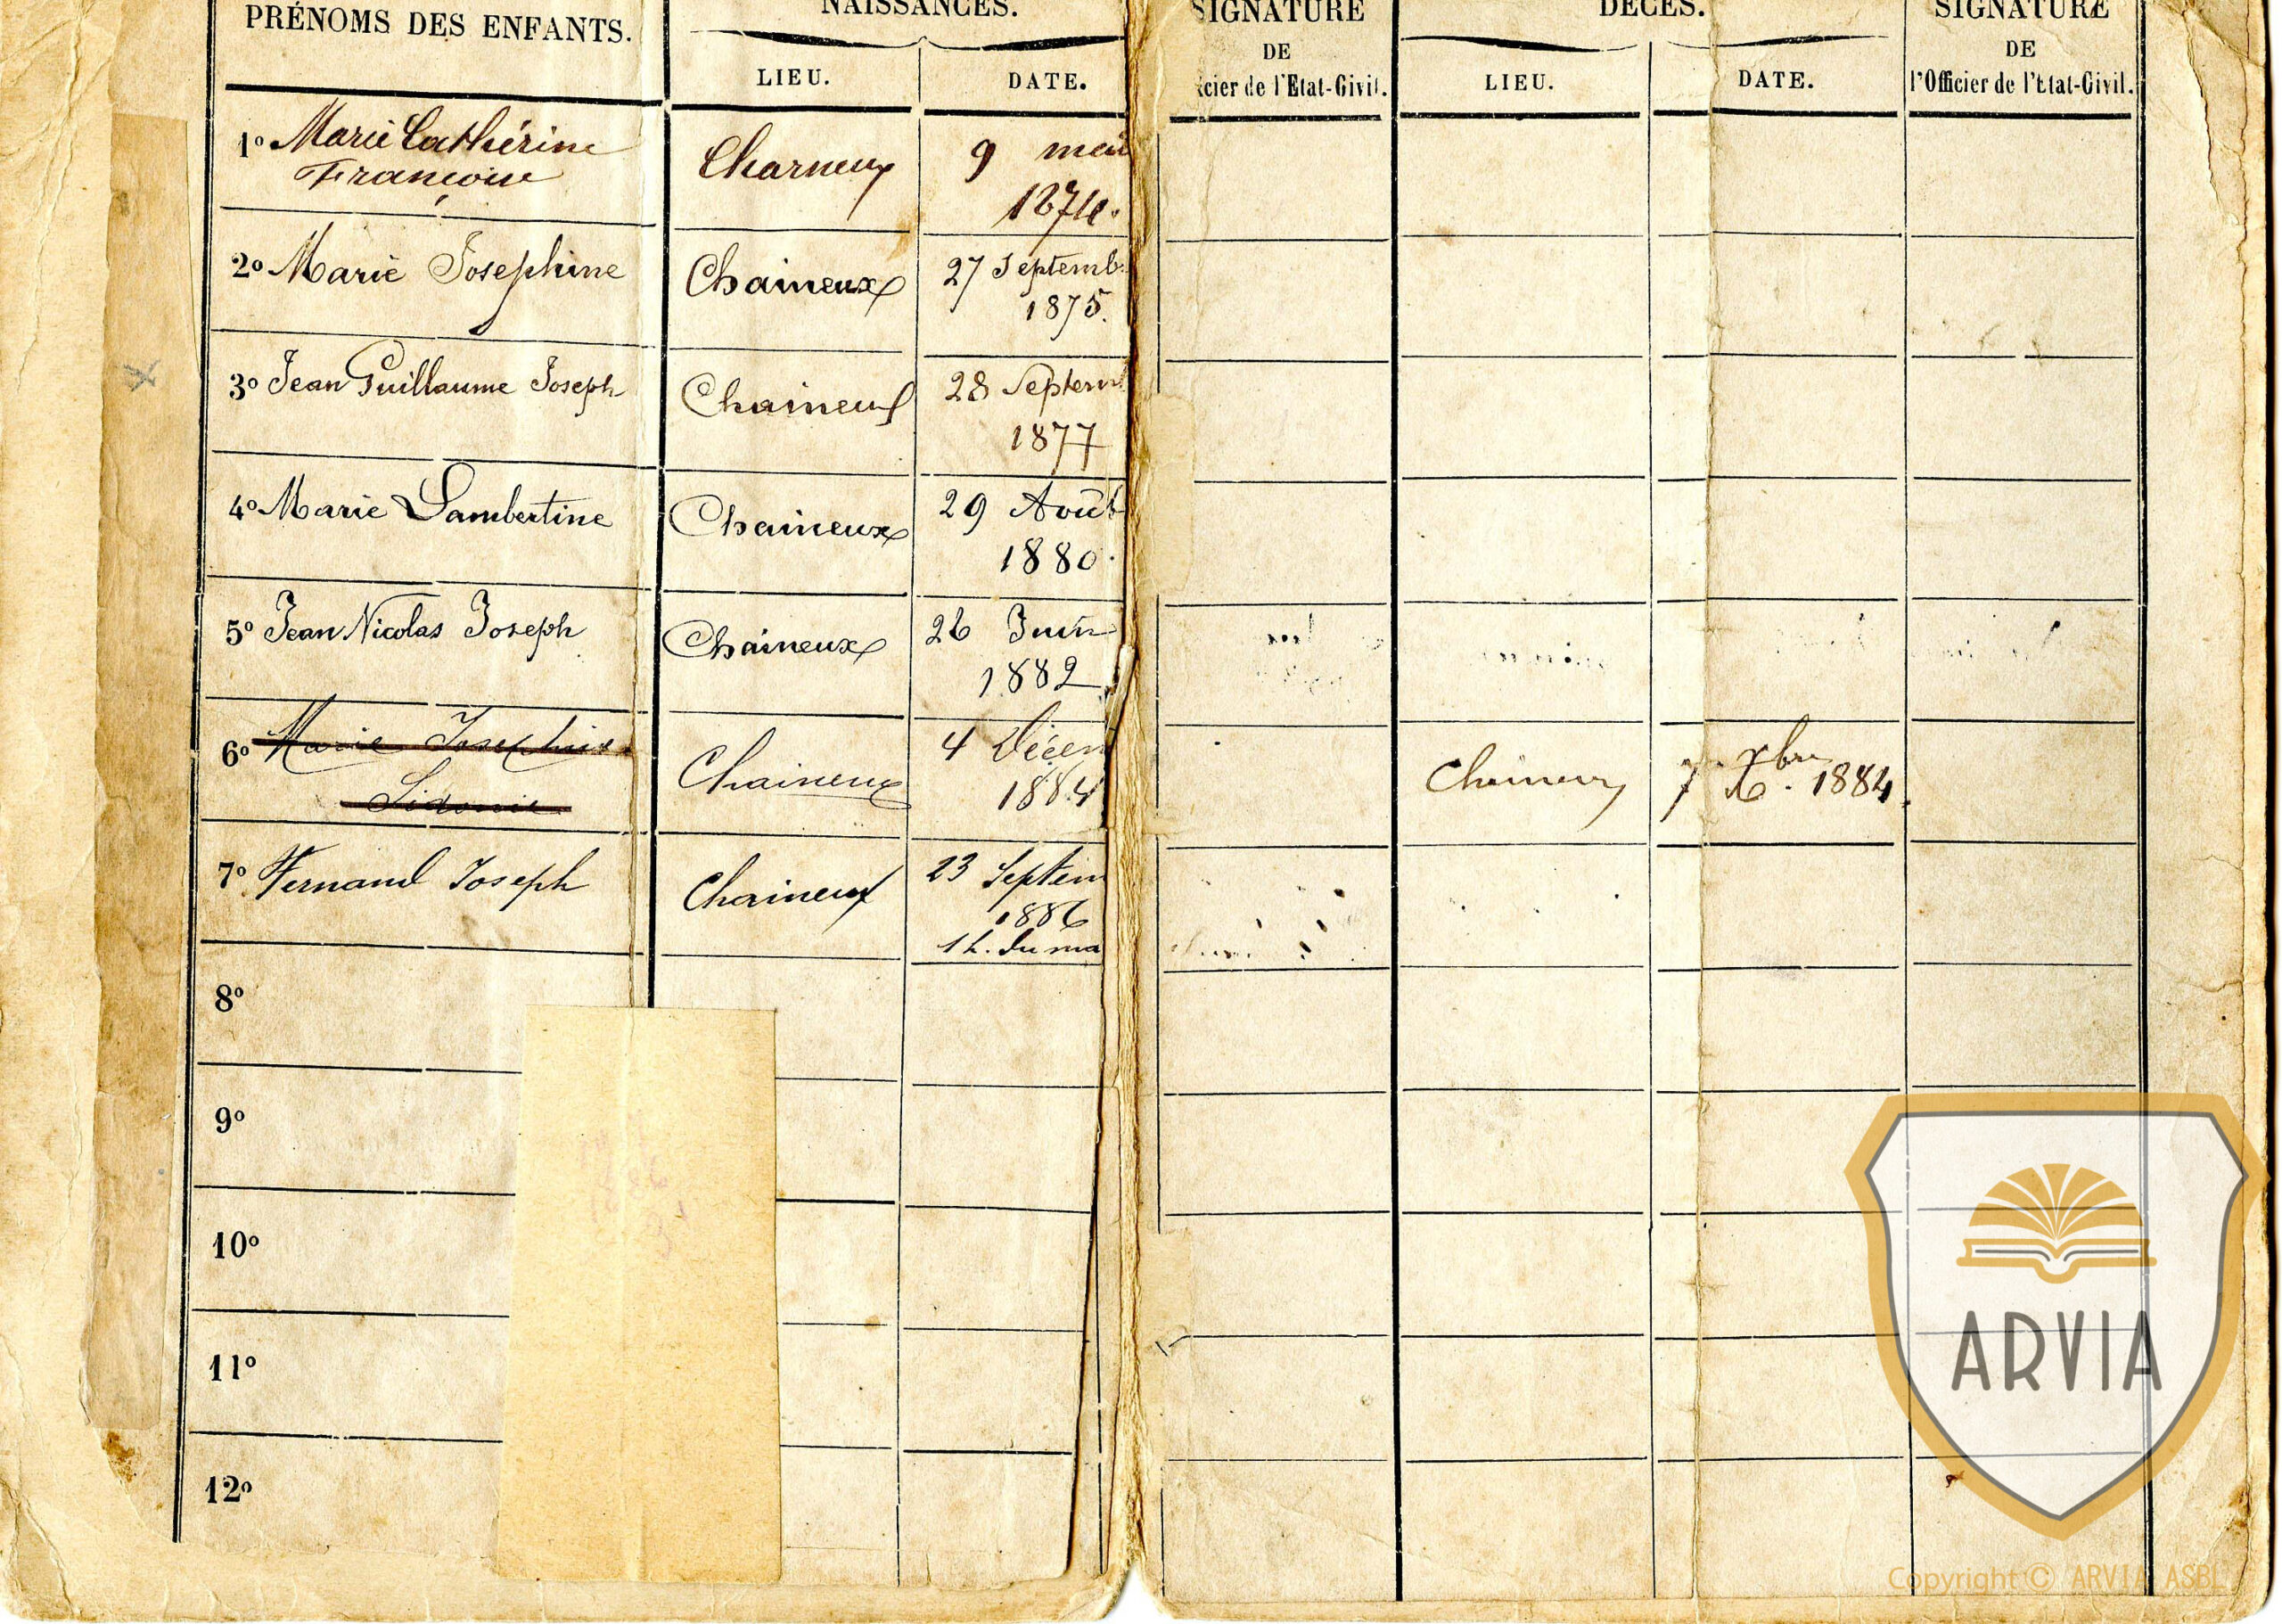 PRÉNOMS DES ENFANTS.
NAISSANCES.
LIEU.
DATE.
SIGNATURE
DE
cier de l'Etat-Civil.
DÉCÈS.
LIEU.
DATE.
SIGNATURE
DE
l'Officier de l'Etat-Civil.
1º Marie Cathérine
Françoise
Charneux
9 mai
1874.
2º Marie Josephine
Chaineux
27 Septemb
1875.
3º Jean Guillaume Joseph
Chaineux
28 Septem
1877
4º Marie Lambertine
Chaineux
29 Août
1880.
5º Jean Nicolas Joseph
Chaineux
26 Juin
1882
6º Marie Josephine
Sidonie
Chaineux
4 Décem
1884
Chaineux
7 Xbre 1884
7º Fernand Joseph
Chaineux
23 Septem
1886
1 h. du ma
8º
9º
10º
11º
12º
ARVIA
Copyright © ARVIA ASBL